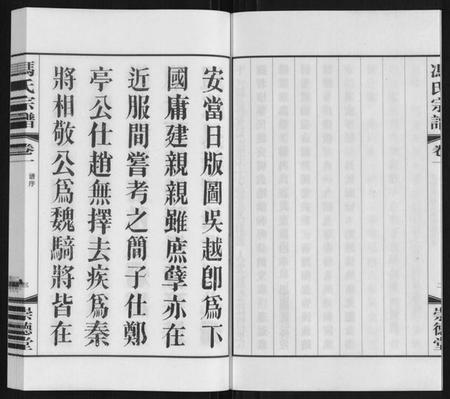 馮氏宗譜
卷一
崇德堂
安當日版圖吳越卽爲下
國庸建親親雖庶孽亦在
近服間嘗考之簡子仕鄭
亭公仕趙無擇去疾爲秦
將相敬公爲魏騎將皆在
馮氏宗譜
卷一
譜序
崇德堂